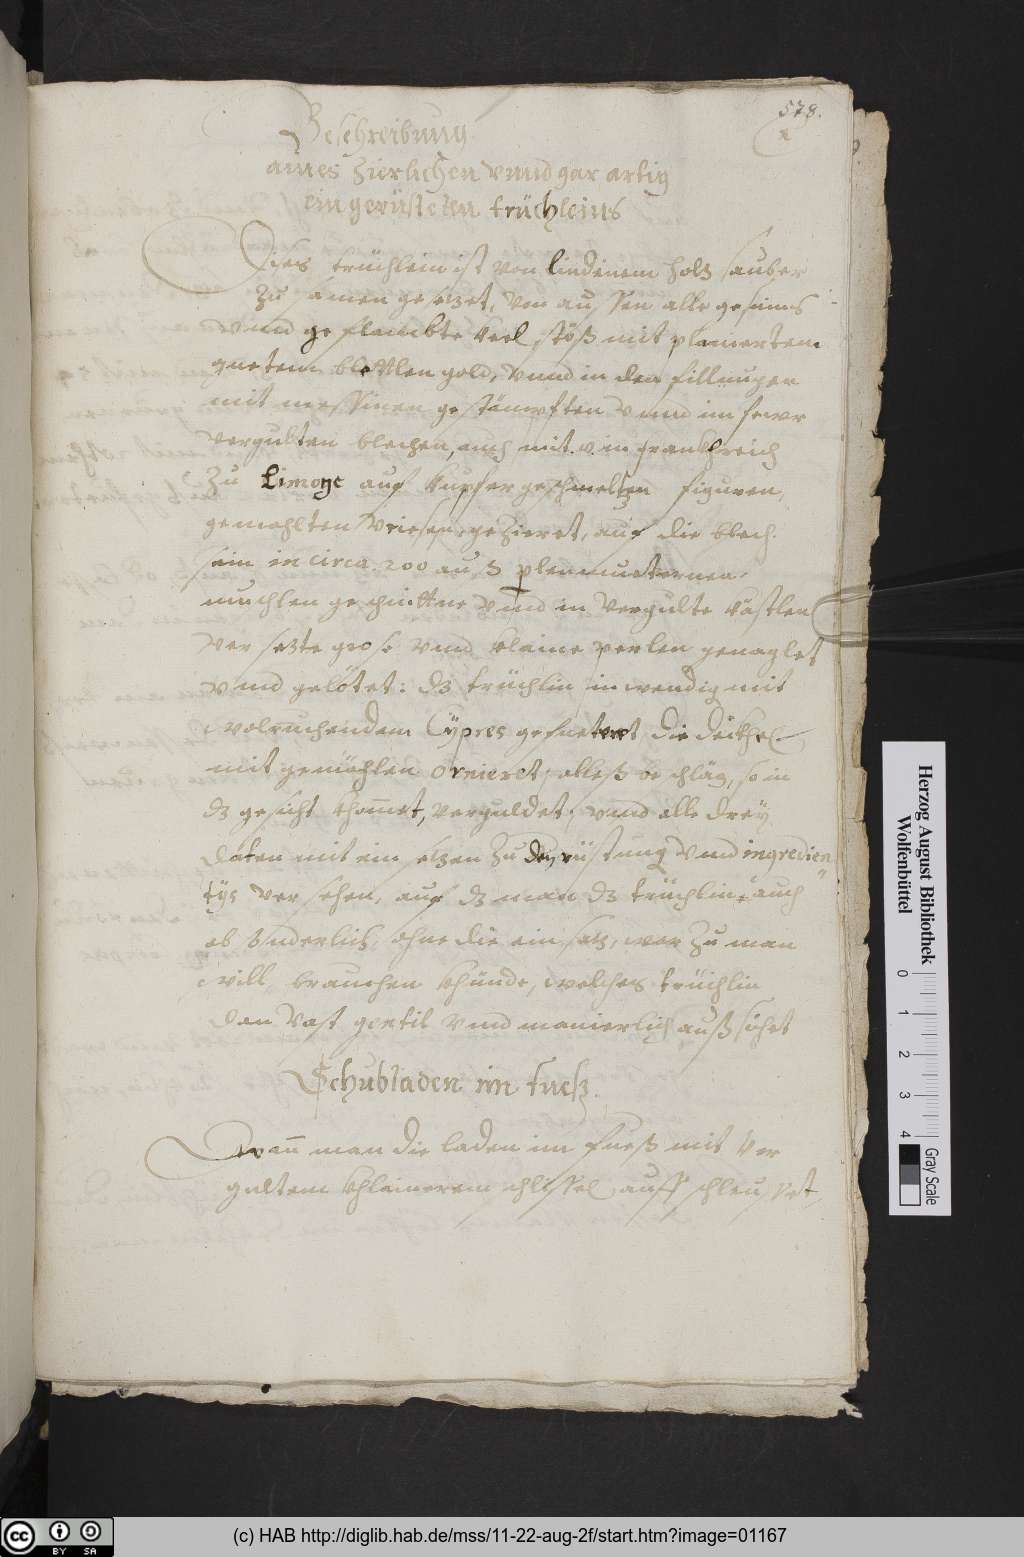 578.
Beschreibung
aines Zierlichen vnnd gar artig
ein gerüsteten trüchleins
Dises trüchlein ist von lindinem holtz sauber
Zu samen gesezet, von aussen alle gesimbs
vnnd geflambte keel stöß mit planiertem
guetem blettlen gold, vnnd in den fillungen
mit messinen gestämpften vnnd im fewr
vergulten blechen, auch mit in frankhreich
Zu Limoge auf kupfer geschmeltzten figuren,
gemahlten vriesen, gezieret, auf die blech
sein in circa. 200 auß perlenmuoternen
muschlen geschnittne vnnd in vergulte Cästlen
versezte grose vnnd klaine perlen genaglet
vnnd gelötet: dz trüchlin inwendig mit
wolriechendem Cypres gefuetert die deckhel
mit gemählen ornieret, alles beschläg, so in
dz gesicht khommet, verguldet, vnnd alle drey
laden mit ein sätzen Zu der rüstung vnnd ingredien
tys versehen, auf dz man dz trüchlin auch
absonderlich, ohne die ein sätz, war Zu man
will, brauchen khünde, welches trüchlin
dan vast gentil vnnd manierlich auß sihet
Schubladen im fueß.
Wann man die laden im fueß mit ver
gultem khlainerem schlissel aufschleusset,
Herzog August Bibliothek
Wolfenbüttel
0 1 2 3 4
Gray Scale
cc BY SA
(c) HAB http://diglib.hab.de/mss/11-22-aug-2f/start.htm?image=01167